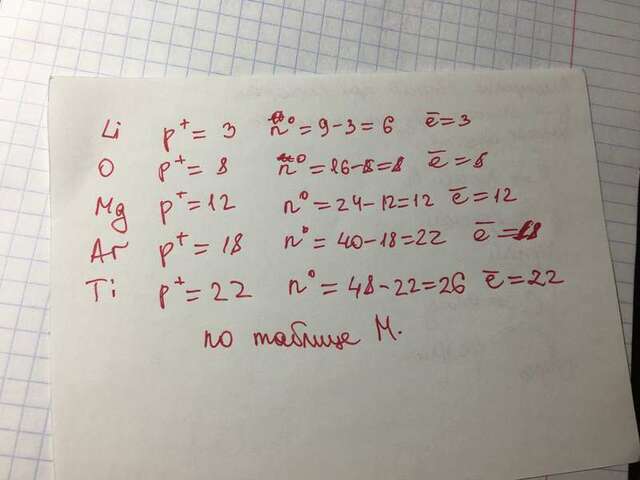 Li p⁺ = 3 n⁰ = 9 - 3 = 6 e̅ = 3
O p⁺ = 8 n⁰ = 16 - 8 = 8 e̅ = 8
Mg p⁺ = 12 n⁰ = 24 - 12 = 12 e̅ = 12
Ar p⁺ = 18 n⁰ = 40 - 18 = 22 e̅ = 18
Ti p⁺ = 22 n⁰ = 48 - 22 = 26 e̅ = 22
по таблице М.